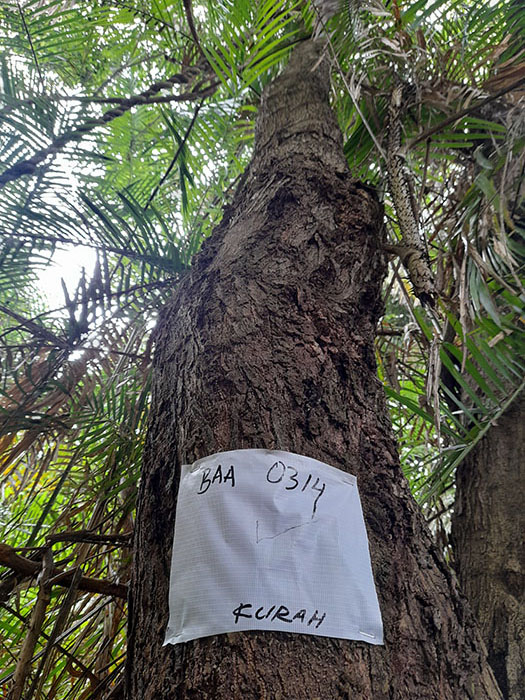 BAA 0314
KURAH